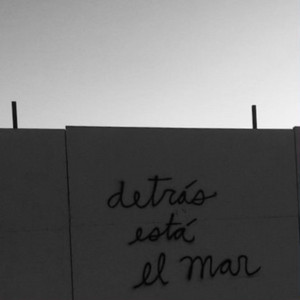 detrás
está
el mar